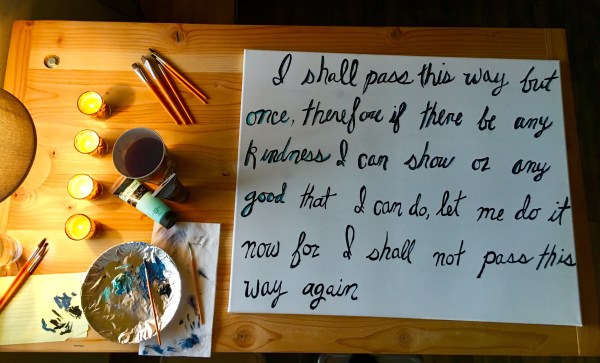 I shall pass this way but
once, therefore if there be any
kindness I can show or any
good that I can do, let me do it
now for I shall not pass this
way again